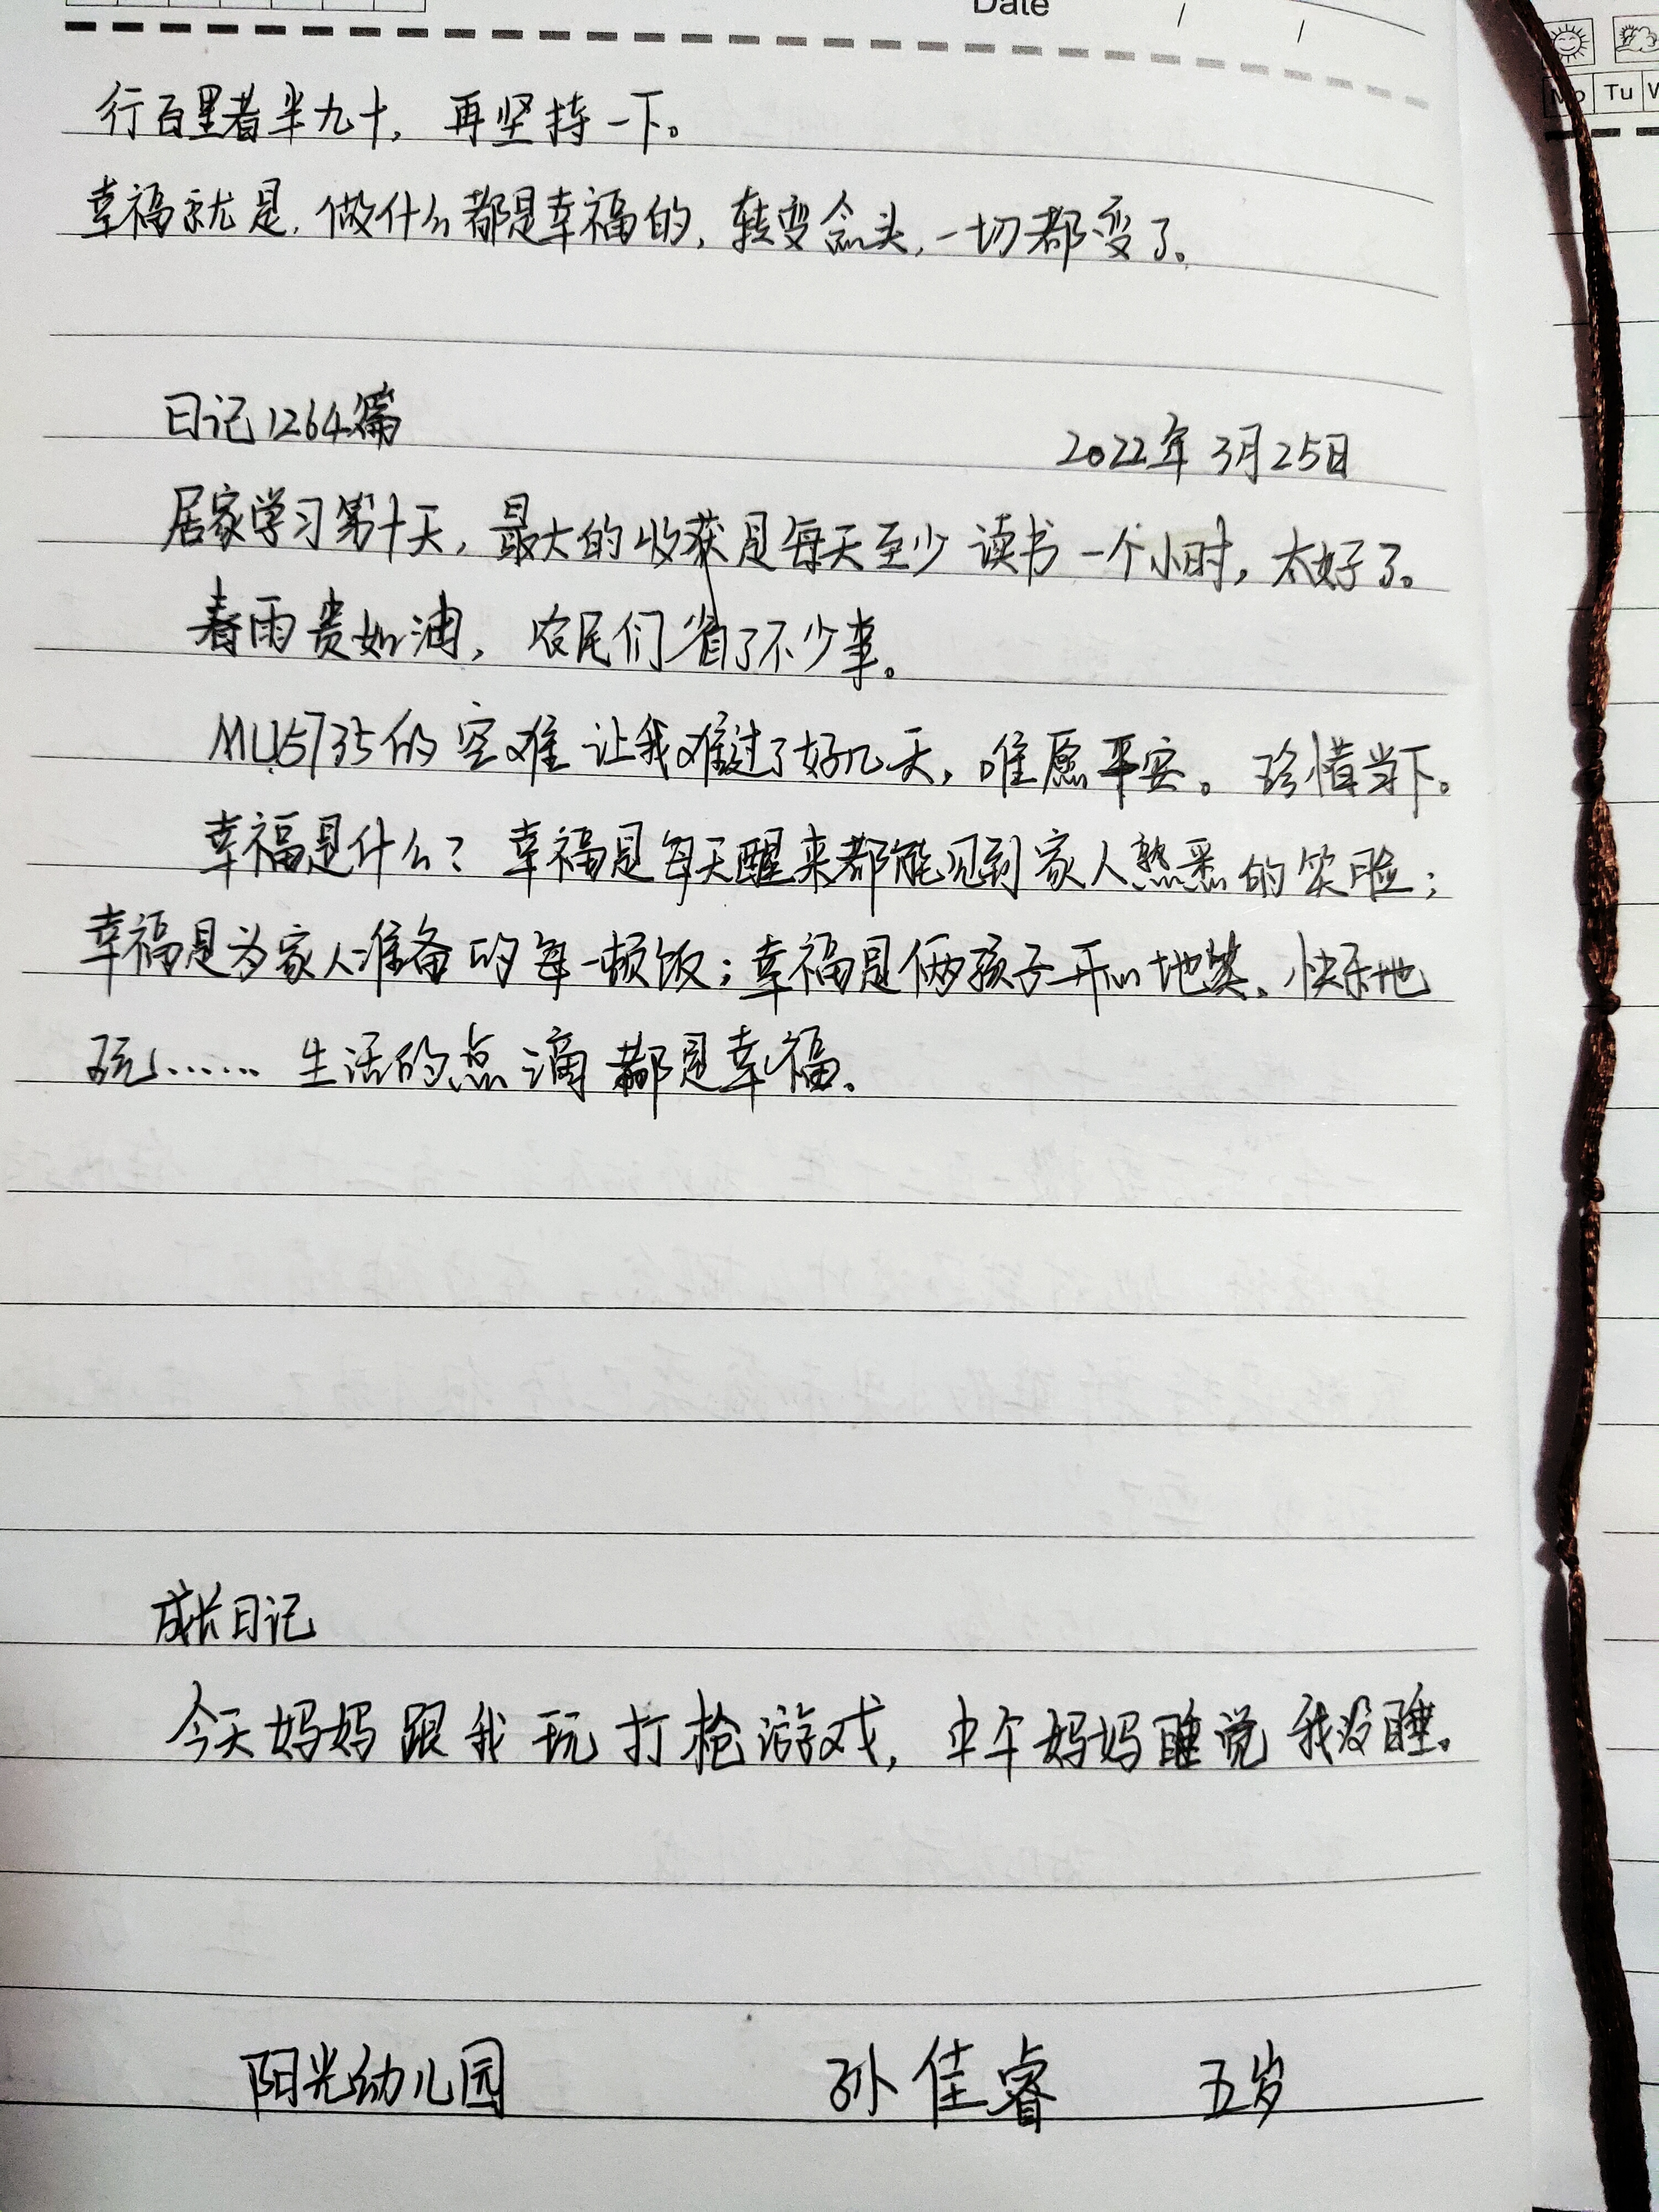 Date / /
Mo Tu
行百里者半九十，再坚持一下。
幸福就是，做什么都是幸福的，转变念头，一切都变了。
日记1264篇 2022年3月25日
居家学习第十天，最大的收获是每天至少读书一个小时，太好了。
春雨贵如油，农民们省了不少事。
MU5735的空难让我难过了好几天，唯愿平安。珍惜当下。
幸福是什么？幸福是每天醒来都能见到家人熟悉的笑脸；
幸福是为家人准备的每一顿饭；幸福是俩孩子开心地笑、快乐地
玩……生活的点滴都是幸福。
成长日记
今天妈妈跟我玩打枪游戏，中午妈妈睡觉我没睡。
阳光幼儿园 孙佳睿 五岁